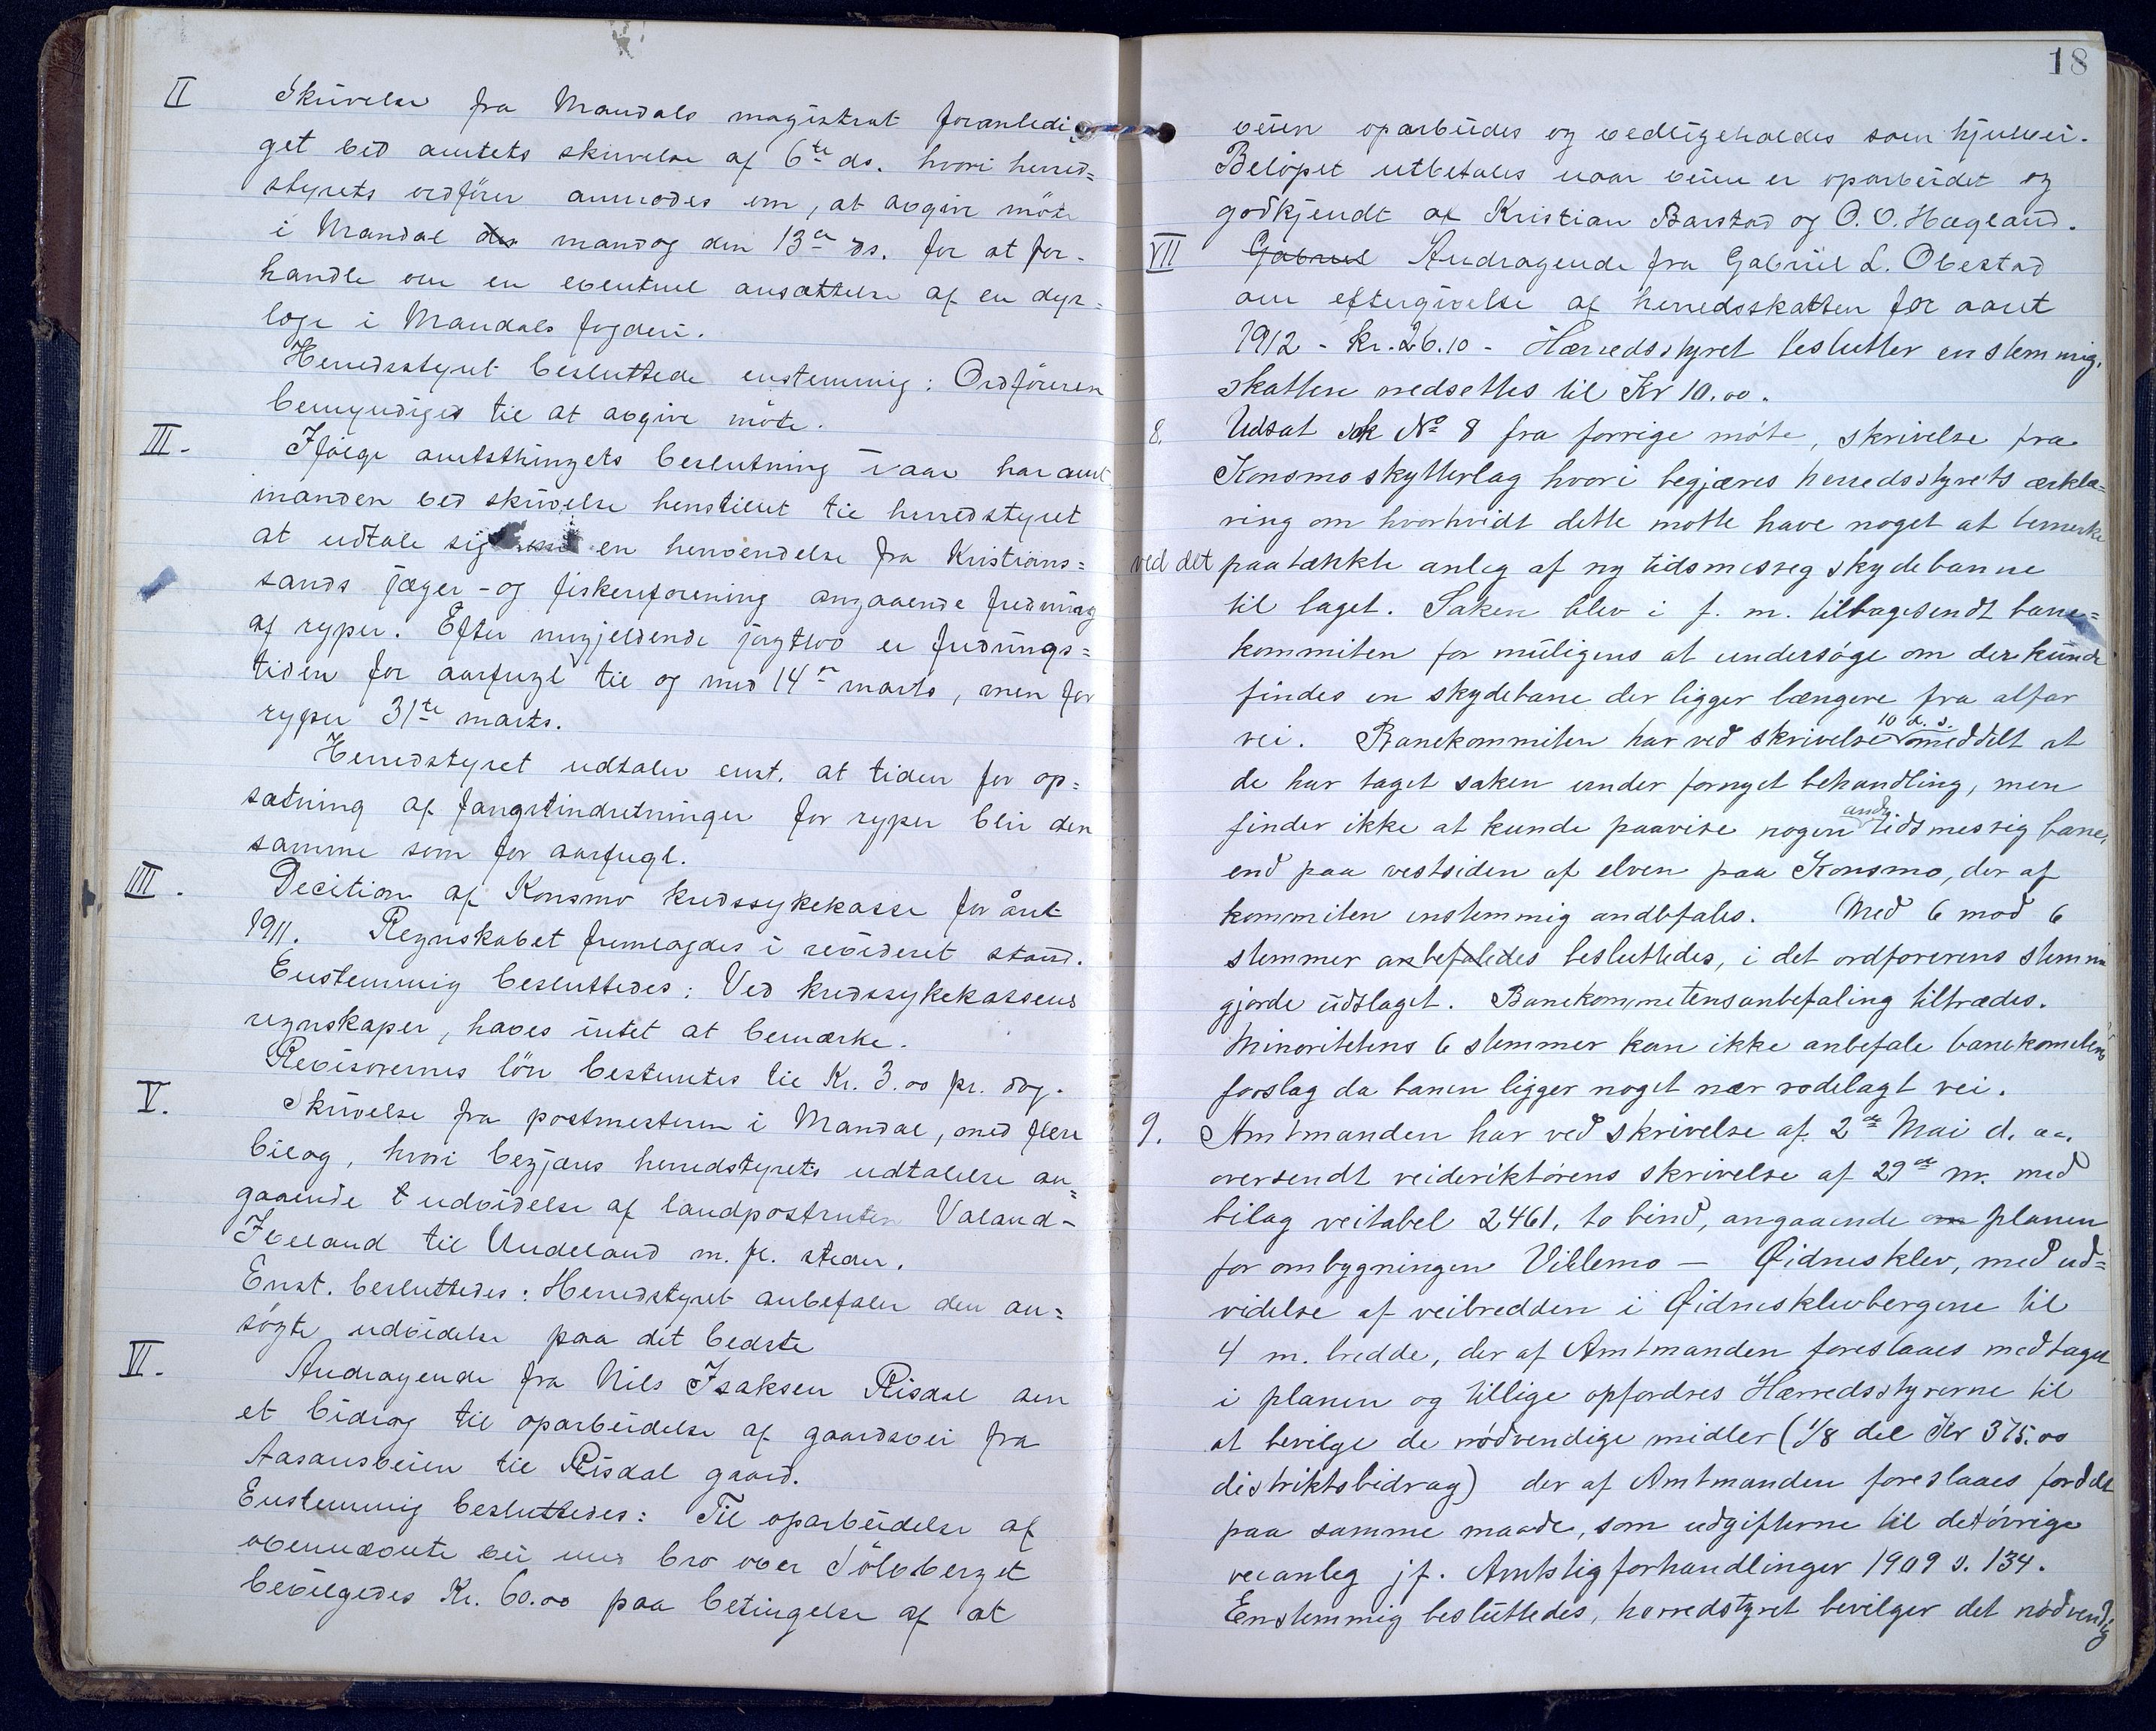 II Skrivelse fra Mandals magistrat foranledi-
get ved amtets skrivelse af 6te ds. hvori herred=
styrets ordfører anmodes om, at avgive møte
i Mandal den mandag den 13de ds. for at for-
handle om en eventuel ansættelse af en dyr=
læge i Mandals fogderi.
Herredsstyret besluttede enstemmig: Ordføreren
bemyndiges til at avgive møte.
III. Ifølge amtsthingets beslutning ivaar har amt
manden ved skrivelse henstillet til herredstyret
at udtale sig en henvendelse fra Kristians=
sands jæger- og fiskerforening angaaende fredning
af ryper. Efter nugjeldende jagtlov er frednings=
tiden for aarfugl til og med 14de marts, men for
ryper 31te marts.
Herredstyret udtaler enst. at tiden for op=
sætning af fangstindretninger for ryper blir den
samme som for aarfugl.
IIII. Decition af Konsmo kredssykekasse for året
1911. Regnskabet fremlagdes i revideret stand.
Enstemmig besluttedes: Ved kredssykekassens
regnskaper, haves intet at bemærke.
Revisorernes løn bestemtes til Kr. 3.00 pr. dag.
V. Skrivelse fra postmesteren i Mandal, med flere
bilag, hvori begjæres herredstyrets udtalelse an=
gaaende t udvidelse af landpostruten Valand-
Iveland til Undeland m. fl. steder.
Enst. besluttedes: Herredstyret anbefaler den an=
søgte udvidelse paa det bedste
VI. Andragende fra Nils Isaksen Risdal om
et bidrag til oparbeidelse af gaardsvei fra
Aasansveien til Risdal gaard.
Enstemmig besluttedes: Til oparbeidelse af
ovennævnte vei med bro over Sölvberget
bevilgedes Kr. 60.00 paa betingelse af at
18
veien oparbeides og vedligeholdes som hjulvei.
Beløpet utbetales naar veien er oparbeidet og
godkjendt af Kristian Barstad og O. O. Hægland.
VII Gabriel Andragende fra Gabriel L. Obestad
om eftergivelse af herredsskatten for aaret
1912 - kr. 26.10 - Hærredsstyret beslutter enstemmig,
skatten nedsettes til Kr 10.00.
8. Udsat sak No 8 fra forrige møte, skrivelse fra
Konsmo skytterlag hvori begjæres herredsstyrets erklæ=
ring om hvorhvidt dette motte have noget at bemerke
ved det paatænkte anleg af ny tidsmesseg skydebanne
til laget. Saken blev i f. m. tilbagesendt bane=
kommiten for muligens at undersøge om der kunde
findes en skydebane der ligger længere fra alfar
vei. Banekommiten har ved skrivelse 10 d. s. meddelt at
de har taget saken under fornyet behandling, men
finder ikke at kunde paavise nogen andy tidsmessig bane,
end paa vestsiden af elven paa Konsmo, der af
kommiten enstemmig andbfales. Med 6 mod 6
stemmer anbefaledes besluttedes, i det ordførerens stemme
gjorde udslaget. Banekommetens anbefaling tiltrædes.
Minoritetens 6 stemmer kan ikke anbefale banekometens
forslag da banen ligger noget nær rodelagt vei.
9. Amtmanden har ved skrivelse af 2de Mai d. aa.
oversendt veideriktørens skrivelse af 29de m. med
bilag veitabel 2461, to bind, angaaende om planen
for ombygningen Villemo - Øidnesklev, med ud=
videlse af veibredden i Øidnesklevbergene til
4 m. bredde, der af Amtmanden foreslaaes medtaget
i planen og tillige opfordres Hærredsstyrerne til
at bevilge de nødvendige midler (1/8 del Kr 375.00
distriktsbidrag) der af Amtmanden foreslaaes fordelt
paa samme maade, som udgifterne til det øvrige
veianleg jf. Amtstigforhandlinger 1909 s. 134.
Enstemmig besluttedes, herredstyret bevilger det nødvendig